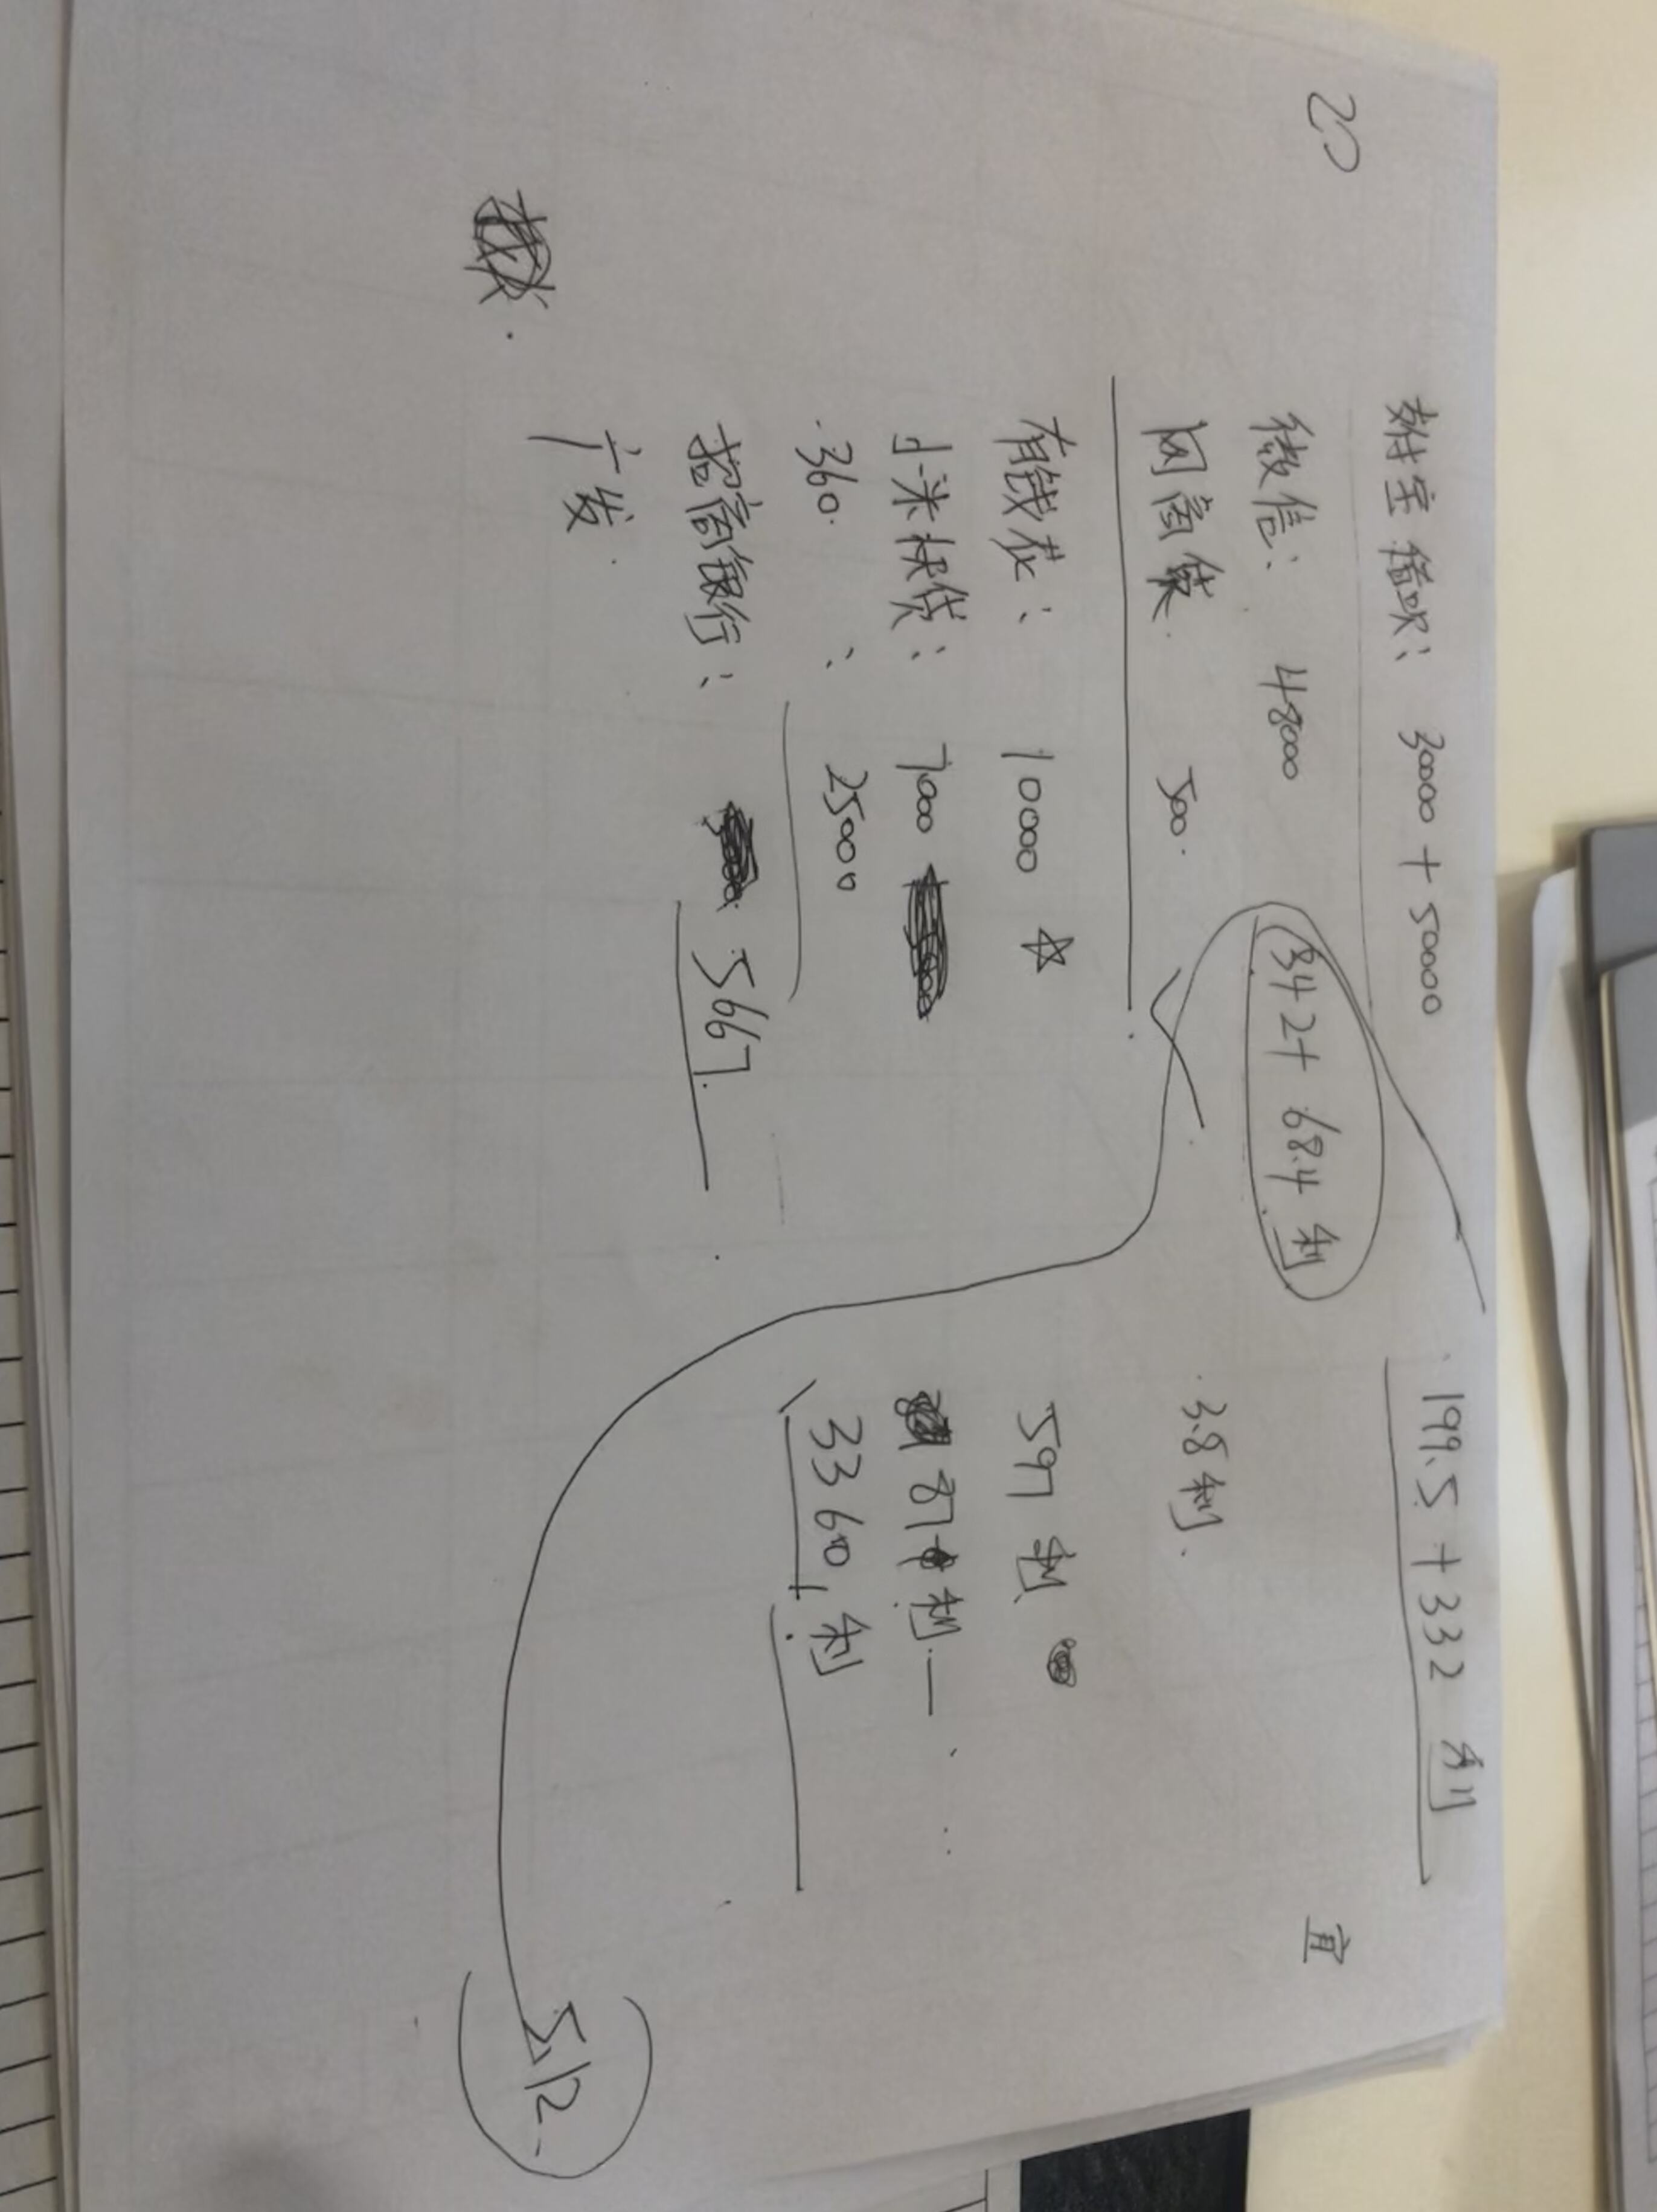 20
宝 : 30000 + 50000 199.5 + 332 利
微信: 48000 342+ 68.4 利 宜
网商贷. 500. 3.8利.
有钱花: 10000 ☆ 597 利
小米快贷: 7000 87 利 —
360. : 25000 3360, 利
招商银行: 5667.
广发.
512